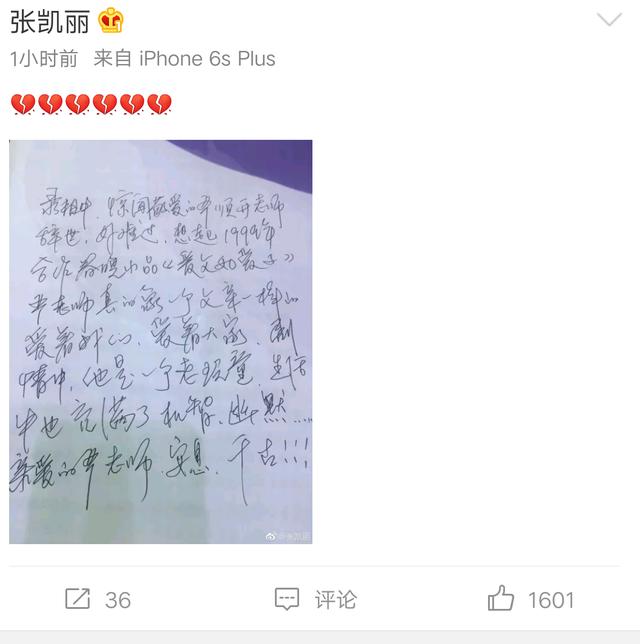 张凯丽
1小时前 来自 iPhone 6s Plus
录相中,惊闻敬爱的严顺开老师
辞世,好难过,想起1999年
合作春晚小品《爱父如爱子》
严老师真的象一个父亲一样的
爱着我们,爱着大家,剧
情中,他是一个老顽童,生活
中也充满了机智、幽默……
亲爱的严老师 安息,千古!!!
36
评论
1601